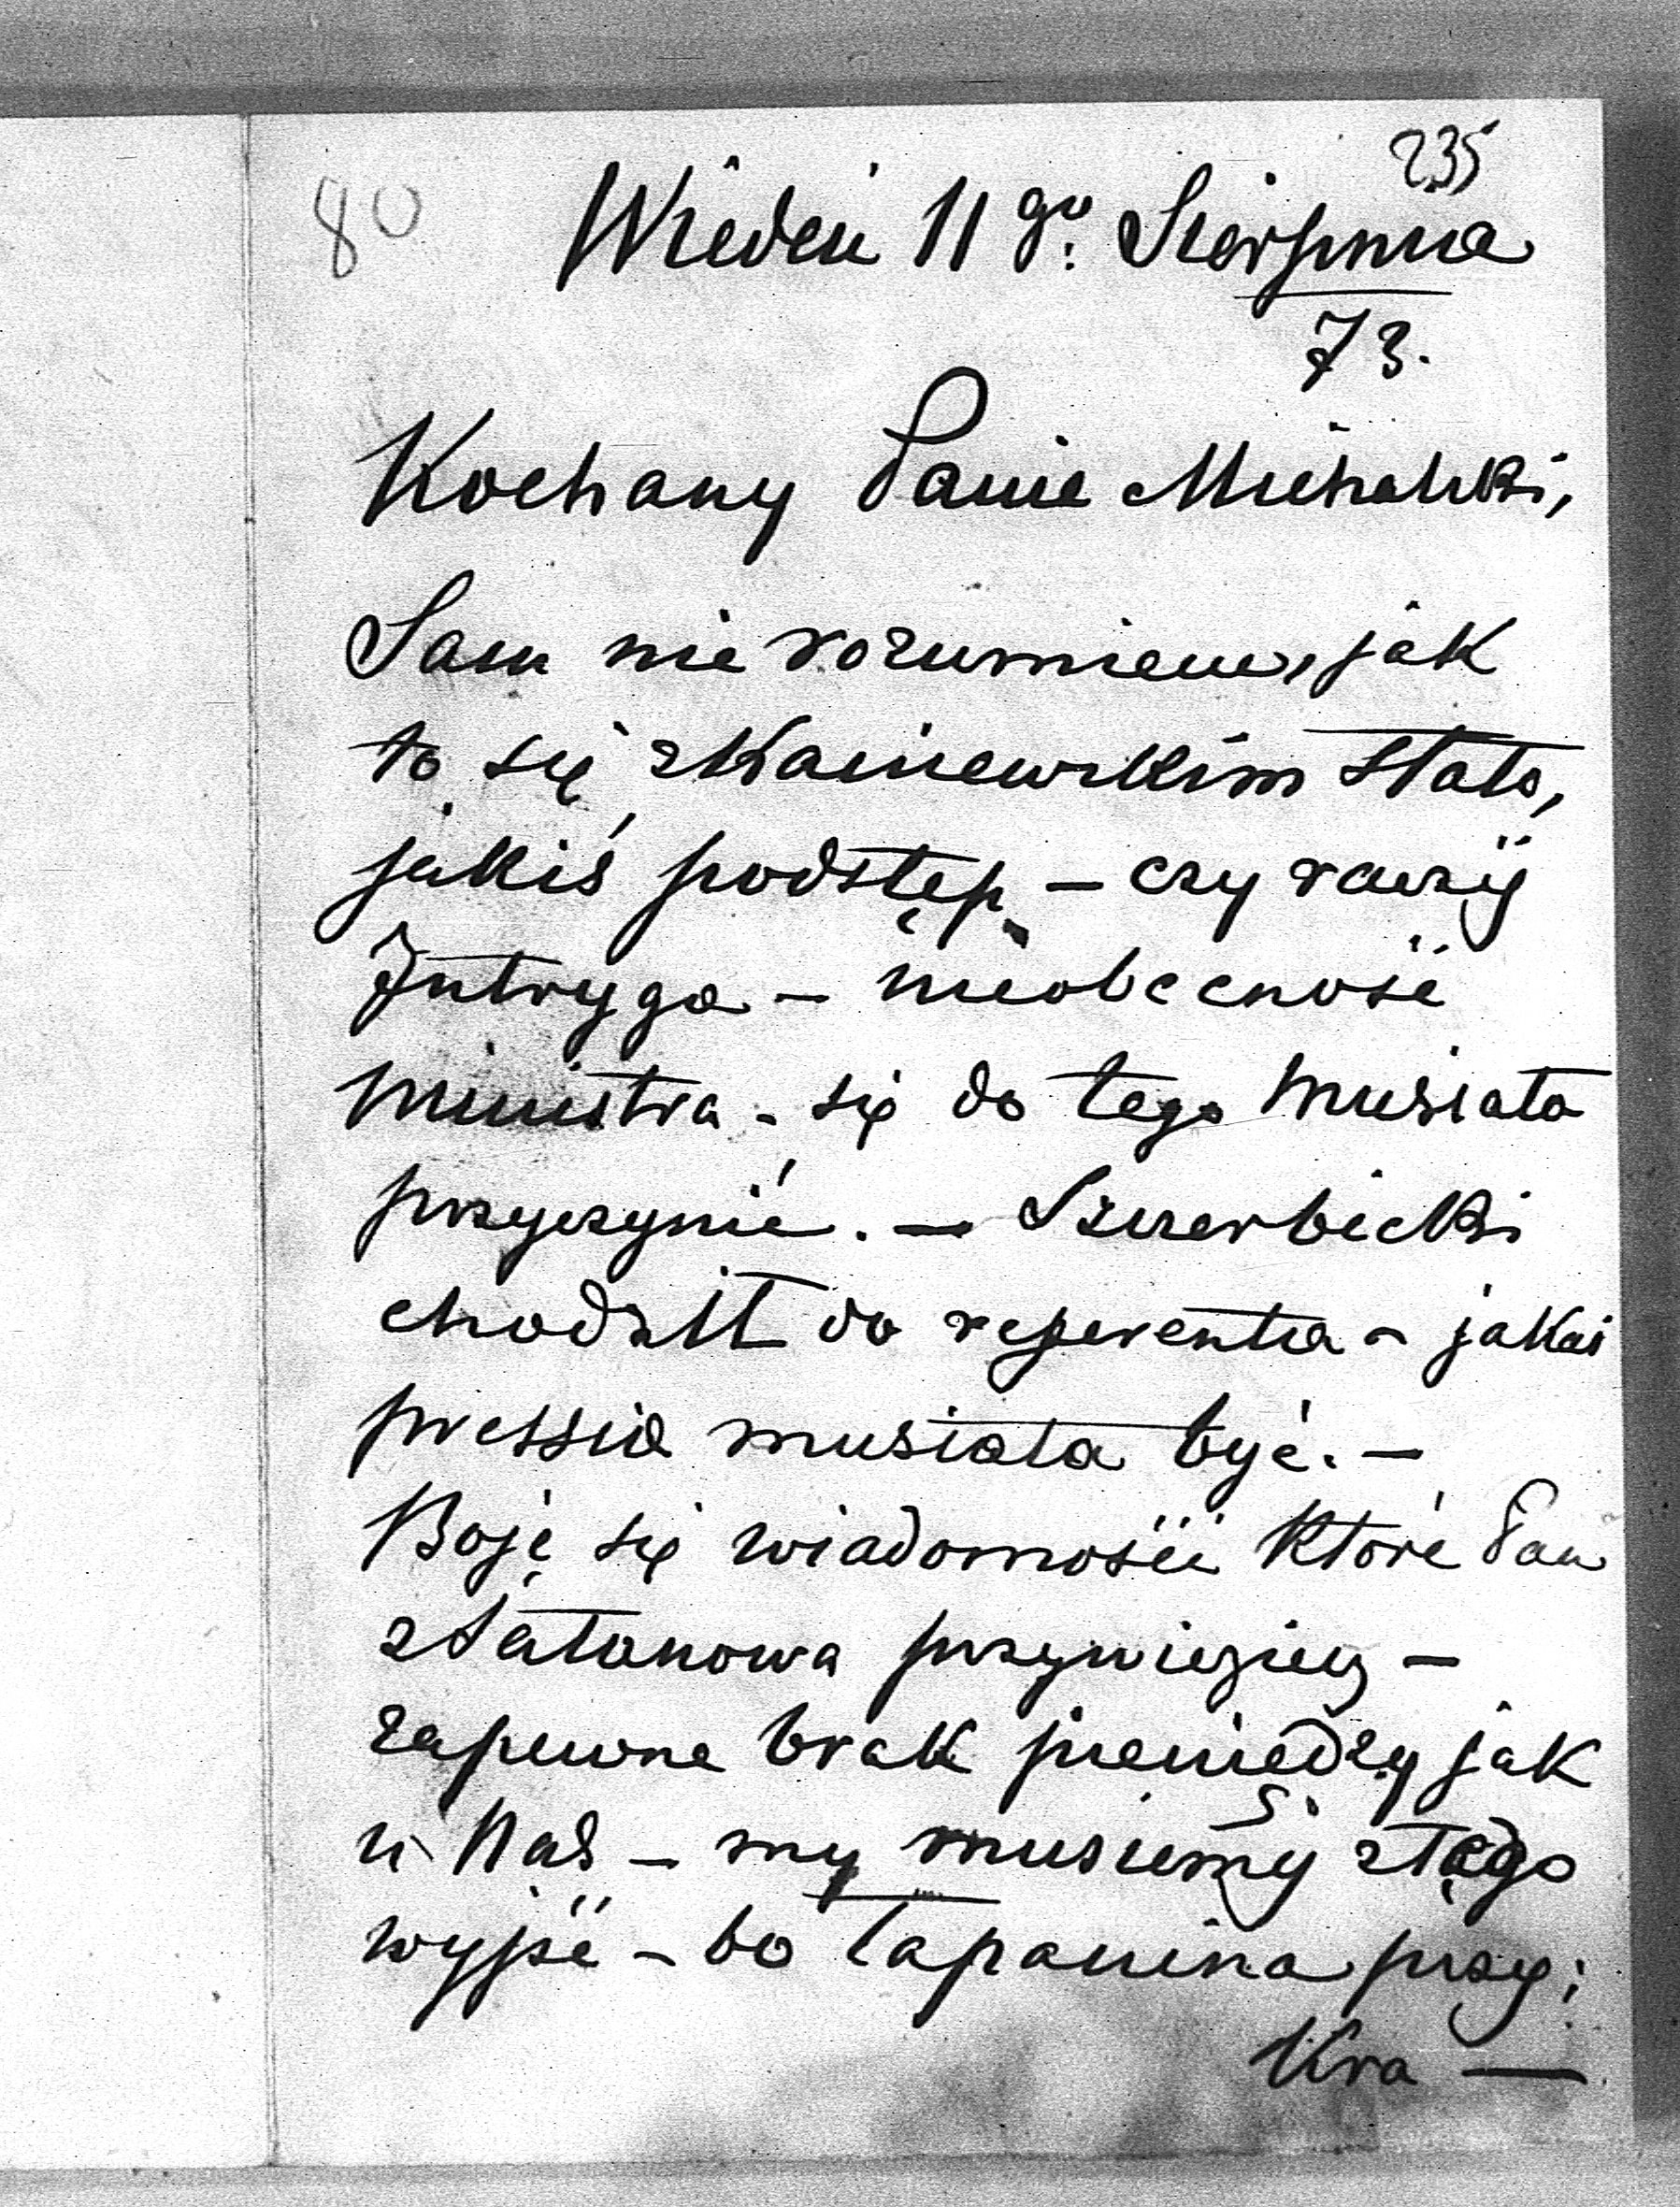 235
80 Wiedeń 11go. Sierpnia
73.
Kochany Panie Michalski,
Sam nie rozumiem, jak
to się z Kaniewskim stało,
jakiś podstęp – czy raczej
Intryga – nieobecność
Ministra – się do tego musiała
przyczynić. – Szczerbicki
chodził do referenta – jakaś
pressia musiała być. –
Boję się wiadomości które Pan
przywiezie –
zapewne brak pieniędzy jak
u Nas – my musiemy z tego
wyjść – bo łapanina przy;
kra —